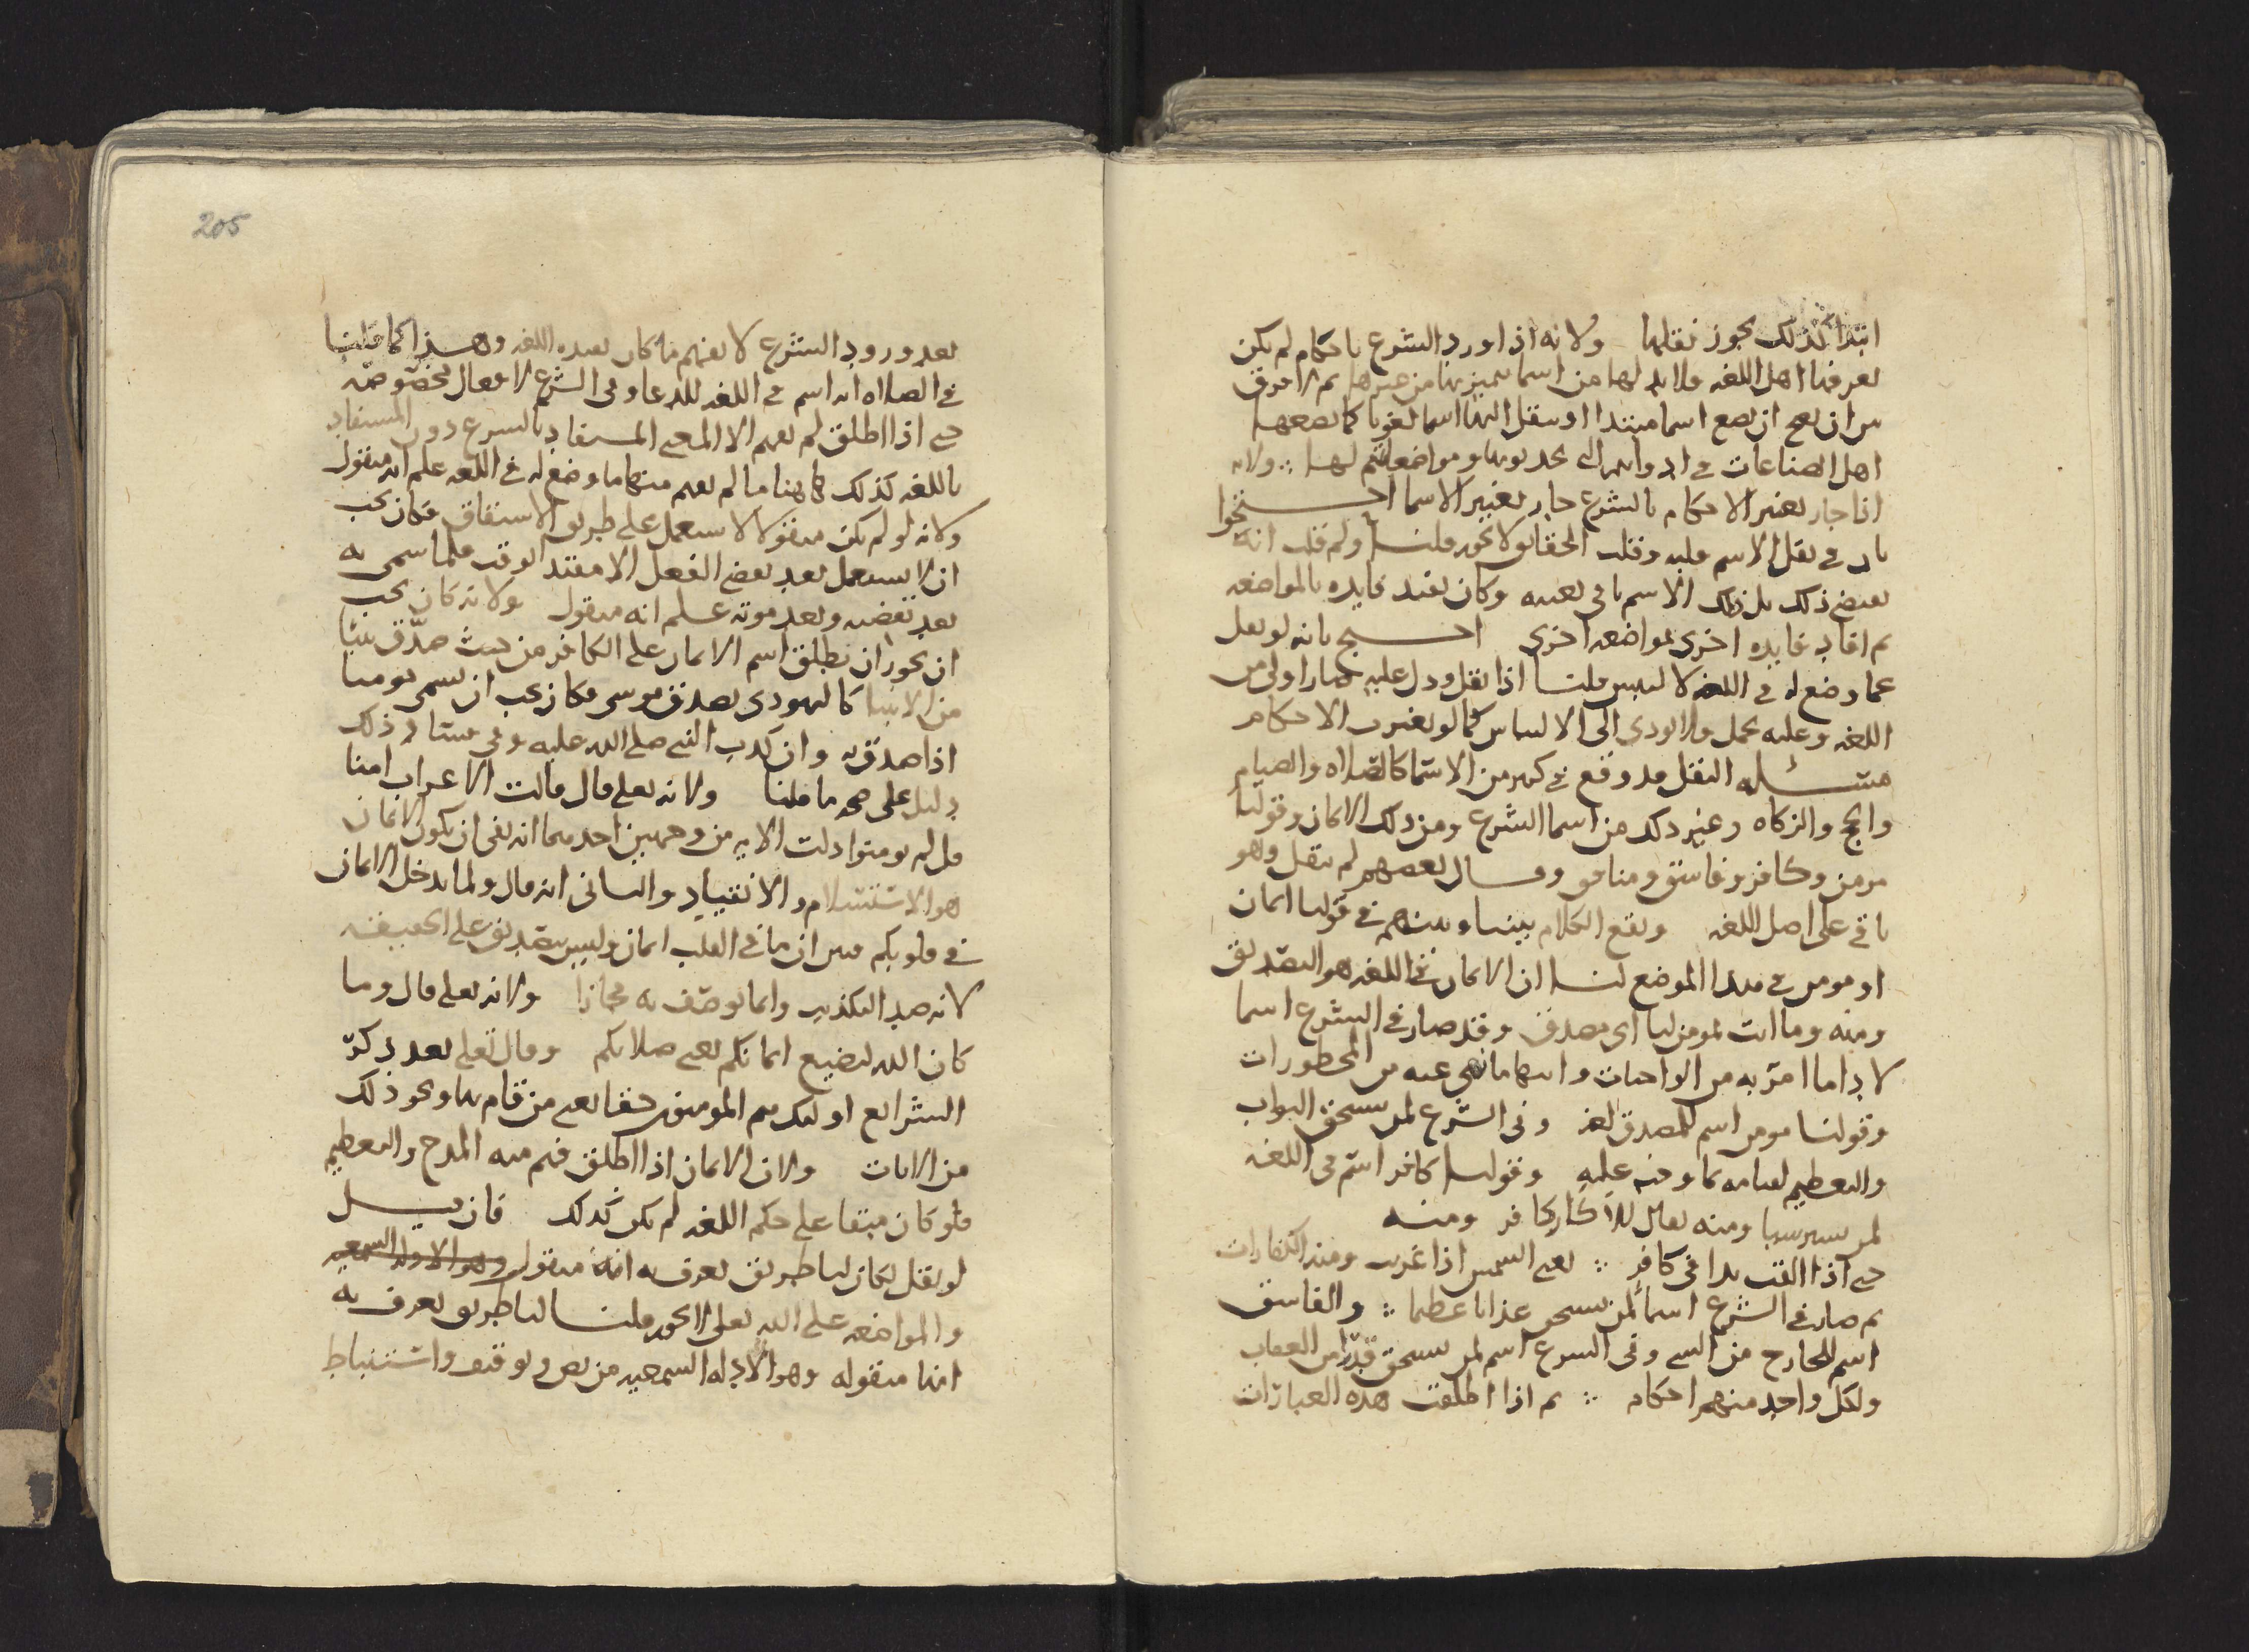 ابتدا كذلك يجوز نقلها ولانه اذا ورد الشرع باحكام لم يكن
يعرفها اهل اللغه فلا بد لها من اسما تتميز بها من غيرها ثم لا فرق
بين ان يضع اسما مبتدا او ينقل اليها اسما لغويا كما يضعها
اهل الصناعات في ادواتهم التي يحدثونها ومواضعاتهم لها ولانه
اذا جاز تغير الاحكام بالشرع جاز تغيير الاسما احتجوا
بان في نقل الاسم قلب الحقايق ولا يجوز قلنا ولم قلت انه
يقتضي ذلك بل ذلك الاسم باقي بعينه وكان يفيد فايده بالمواضعه
ثم افاد فايده اخرى لمواضعه اخرى احتج بانه لو نقل
عما وضع له في اللغه لالتبس قلنا اذا نقل ودل عليه صار اولى من
اللغه وعليه يحمل ولا يودي الى الالتباس كما لو تغيرت الاحكام
مسئله النقل قد وقع في كثير من الاسما كالصلاه والصيام
والحج والزكاه وغير ذلك من اسما الشرع ومن ذلك الايمان وقولنا
مومن وكافر وفاسق ومنافق وقال بعضهم لم ينقل وهو
باقي على اصل اللغه ويقع الكلام بيننا وبينهم في قولنا ايمان
او مومن في هذا الموضع لنا ان الايمان في اللغه هو التصديق
ومنه وما انت بمومن لنا اي مصدق وقد صار في الشرع اسما
لادا ما امر به من الواجبات وانتها ما نهي عنه من المحظورات
وقولنا مومن اسم للمصدق لغه وفي الشرع لمن يستحق الثواب
والتعظيم لقيامه بما وجب عليه وقولنا كافر اسم في اللغه
لمن ستر شيا ومنه يقال للاكار كافر ومنه
حتى اذا القت يدا في كافر يعني الشمس اذا غربت ومنه الكفارات
ثم صار في الشرع اسما لمن يستحق عذابا عظيما والفاسق
اسم للخارج من الشي وفي الشرع اسم لمن يستحق قدرا من العقاب
ولكل واحد منهم احكام ثم اذا اطلقت هذه العبارات
205
بعد ورود الشرع لا يفهم ما كان يفيده اللغه وهذا كما قلنا
في الصلاه انه اسم في اللغه للدعا وفي الشرع لافعال مخصوصه
حتى اذا اطلق لم يفهم الا المعنى المستفاد بالشرع دون المستفاد
باللغه كذلك هاهنا ما لم يفهم منها ما وضع له في اللغه علم انه منقول
ولانه لو لم يكن منقولا لاستعمل على طريق الاشتقاق فكان يجب
ان لا يستعمل بعد بعض الفعل الا مقتدا لوقت فلما سمي به
بعد تقضيه وبعد موته علم انه منقول ولانه كان يجب
ان يجوز ان يطلق اسم الايمان على الكافر من حيث صدق نبيا
من الانبيا كاليهودي يصدق موسى فكان يجب ان يسمى مومنا
اذا صدق به وان كذب النبي صلى الله عليه وفي فساد ذلك
دليل على صحه ما قلنا ولانه تعلى قال قالت الاعراب امنا
قل لم تومنوا دلت الايه من وجهين احدهما انه نفى ان يكون الايمان
هو الاستسلام والانقياد والثاني انه قال ولما يدخل الايمان
في قلوبكم فبين ان ما في القلب ايمان وليس بتصديق على الحقيقه
لانه ضد التكذيب وانما يوصف به مجازا ولانه تعلى قال وما
كان الله ليضيع ايمانكم يعني صلاتكم وقال تعلى بعد ذكر
الشرايع اوليك هم المومنون حقا يعني من قام بها ونحو ذلك
من الايات ولان الايمان اذا اطلق فهم منه المدح والتعظيم
فلو كان مبقا على حكم اللغه لم يكن كذلك فان قيل
لو نقل لكان لنا طريق يعرف به انه منقول وهو الادله السمعيه
والمواضعه على الله تعلى لا تجوز قلنا لنا طريق يعرف به
انها منقوله وهو الادله السمعيه من نص وتوقيف واستنباط